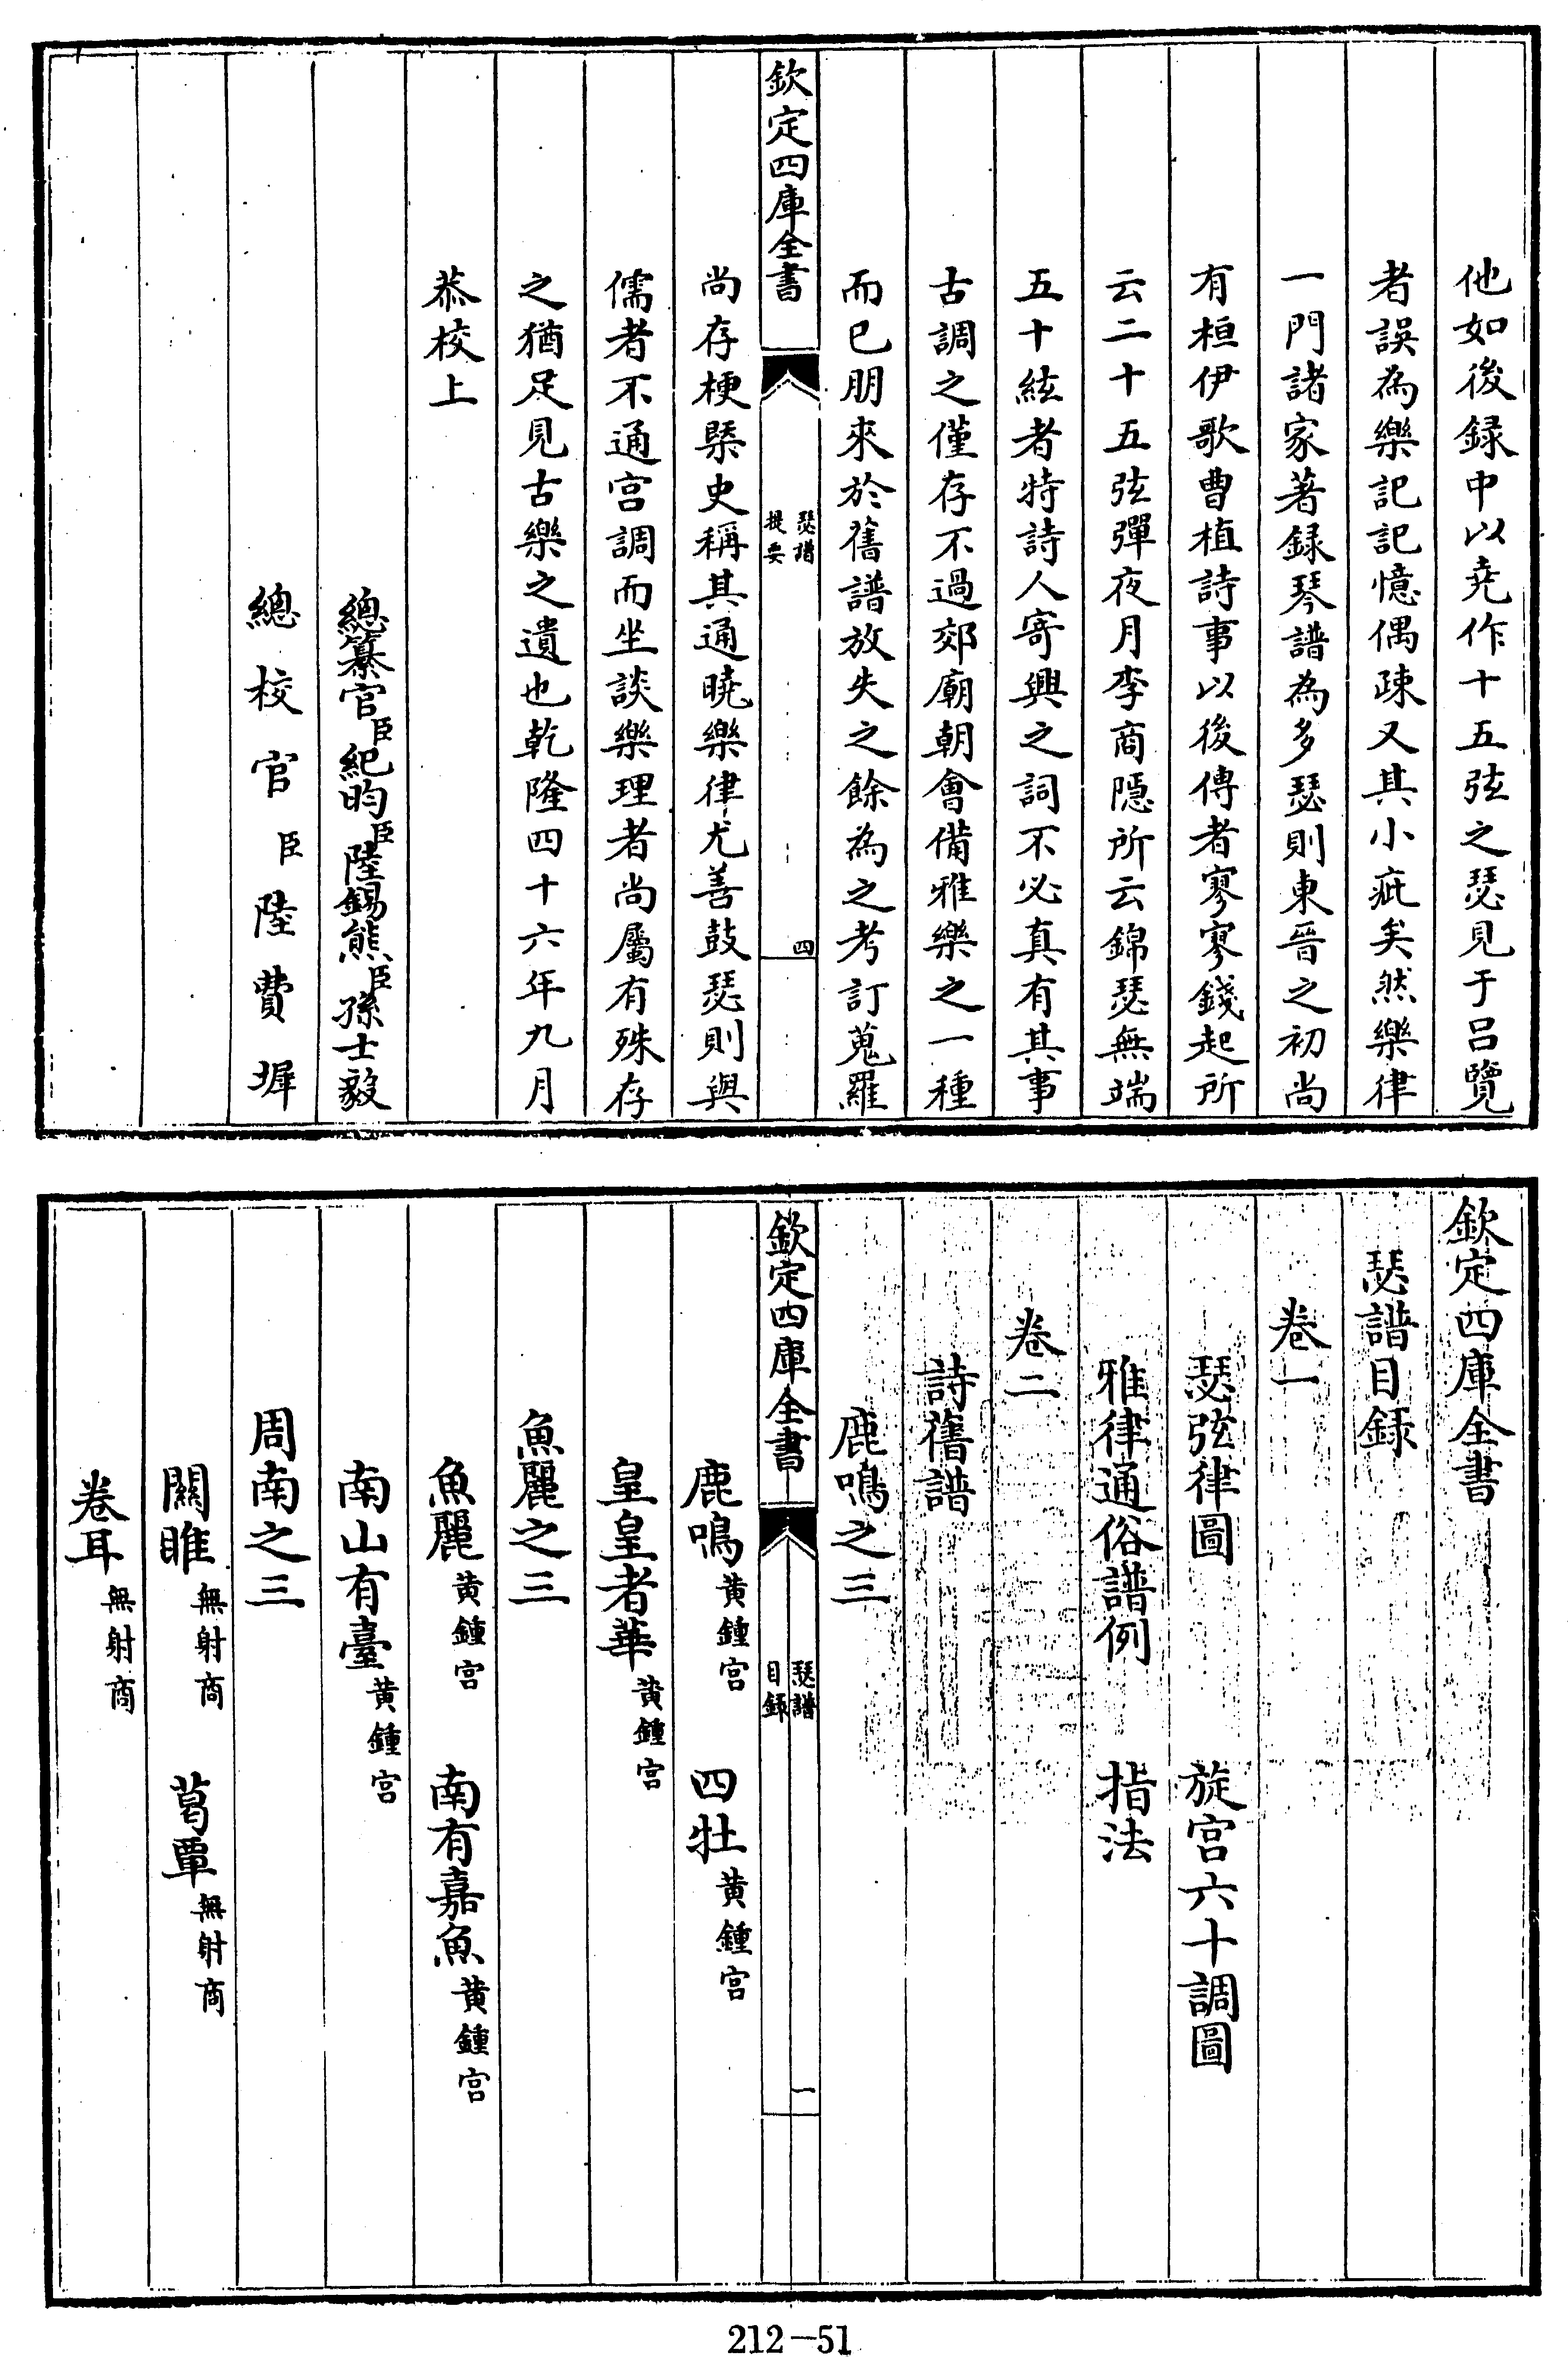 他如後録中以尭作十五弦之瑟見于吕覽
者誤為樂記記憶偶疎又其小疵矣然樂律
一門諸家著録琴譜為多瑟則東晉之初尚
有桓伊歌曹植詩事以後傳者寥寥錢起所
云二十五弦彈夜月李商隠所云錦瑟無端
五十絃者特詩人寄興之詞不必真有其事
古調之僅存不過郊廟朝會備雅樂之一種
而已朋來於舊譜放失之餘為之考訂蒐羅
欽定四庫全書
瑟譜
提要
四
尚存梗槩史稱其通曉樂律尤善鼓瑟則與
儒者不通宫調而坐談樂理者尚屬有殊存
之猶足見古樂之遺也乾隆四十六年九月
恭校上
總纂官臣紀昀臣陸錫熊臣孫士毅
總校官臣陸費墀
欽定四庫全書
瑟譜目録
卷一
瑟弦律圖 旋宫六十調圖
雅律通俗譜例 指法
卷二
詩舊譜
鹿鳴之三
欽定四庫全書
瑟譜
目録
一
鹿鳴黄鍾宫 四牡黄鍾宫
皇皇者華黄鍾宫
魚麗之三
魚麗黄鍾宫 南有嘉魚黄鍾宫
南山有臺黄鍾宫
周南之三
關雎無射商 葛覃無射商
卷耳無射商
212-51